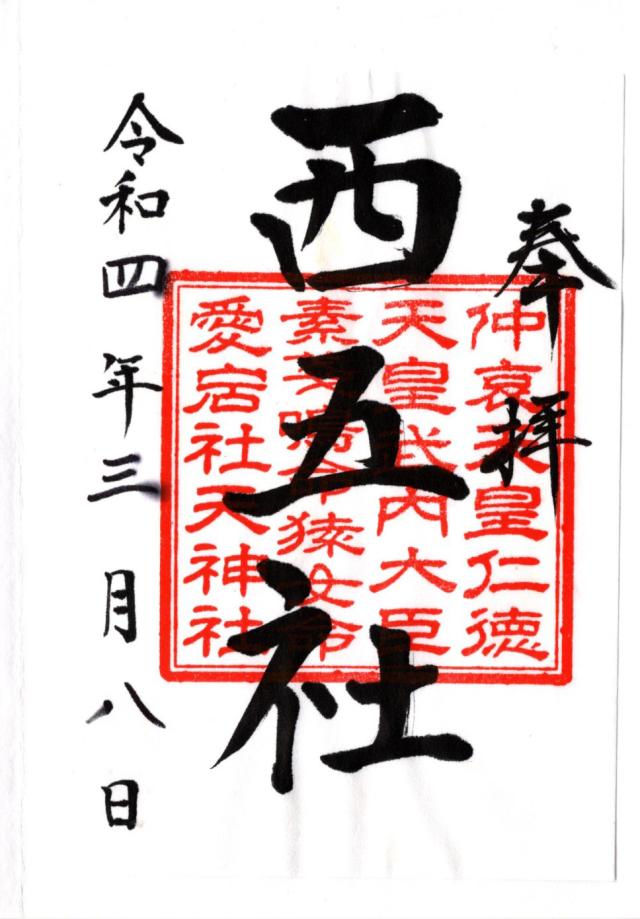 奉拝
仲哀天皇仁徳
天皇武内大臣
素戔嗚命猿女命
愛宕社天神社
西五社
令和四年三月八日